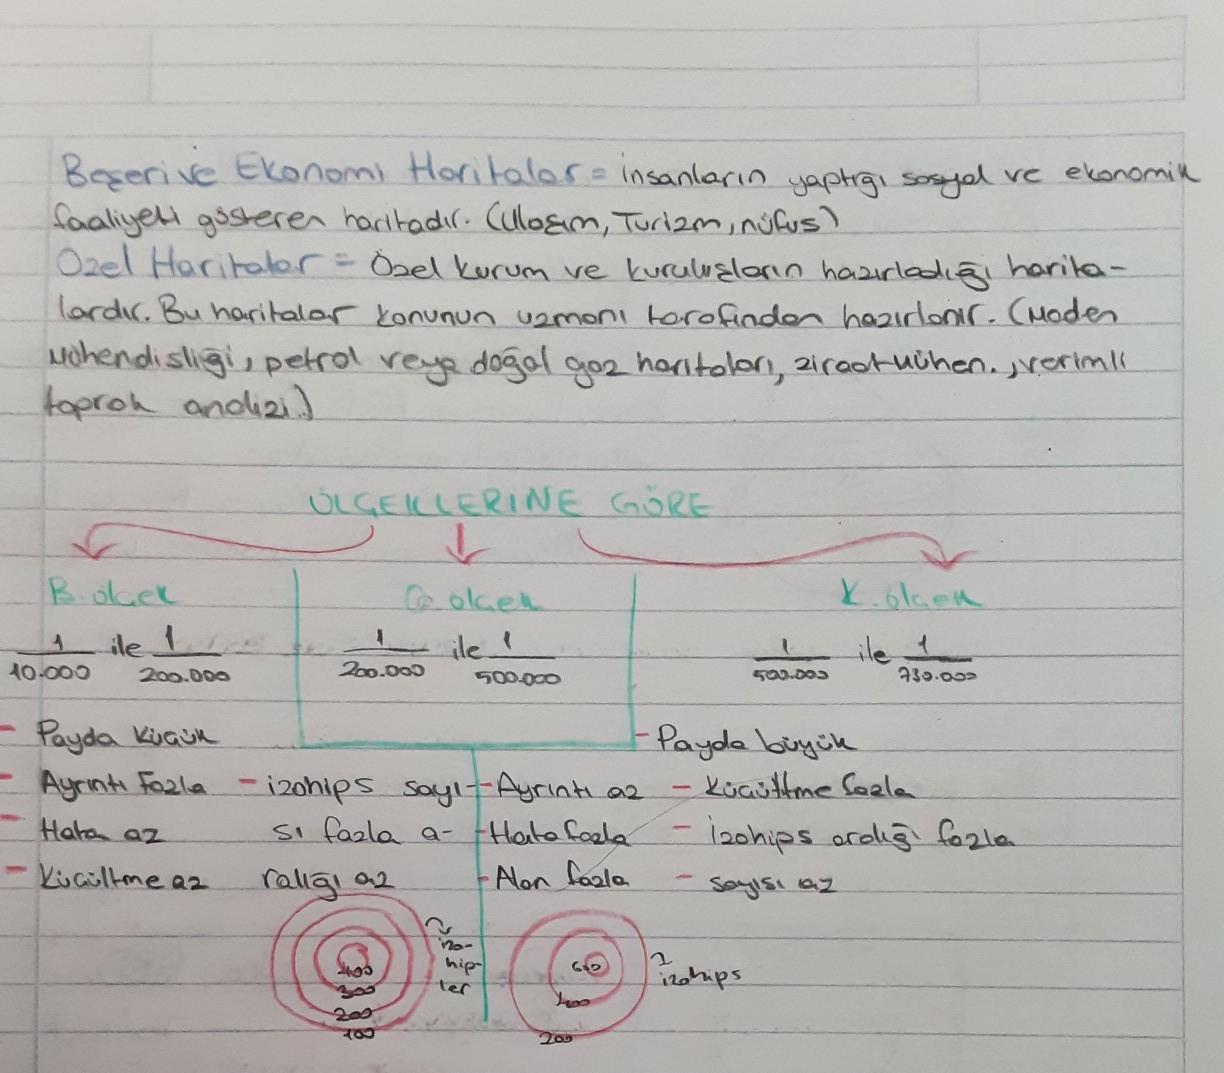 Beşeri ve Ekonomi Haritalar = insanların yaptığı sosyal ve ekonomik
faaliyeti gösteren haritadır. (Ulaşım, Turizm, nüfus)
Özel Haritalar = Özel kurum ve kuruluşların hazırladığı harita-
lardır. Bu haritalar konunun uzmanı tarafından hazırlanır. (Maden
Mühendisliği, petrol veya doğal gaz haritaları, ziraat mühen., verimli
toprak analizi.)
ÖLÇEKLERİNE GÖRE
B. ölçek
O. ölçek
K. ölçek
1/10.000 ile 1/200.000
1/200.000 ile 1/500.000
1/500.000 ile 1/730.000
- Payda küçük
- Ayrıntı Fazla
- Hata az
- Küçültme az
- izohips sayı-
sı fazla a-
ralığı az
400
300
200
100
izo-
hip-
ler
- Payda büyük
- Ayrıntı az
- Hata fazla
- Alan fazla
- Küçültme fazla
- İzohips aralığı fazla
- sayısı az
600
400
200
izohips